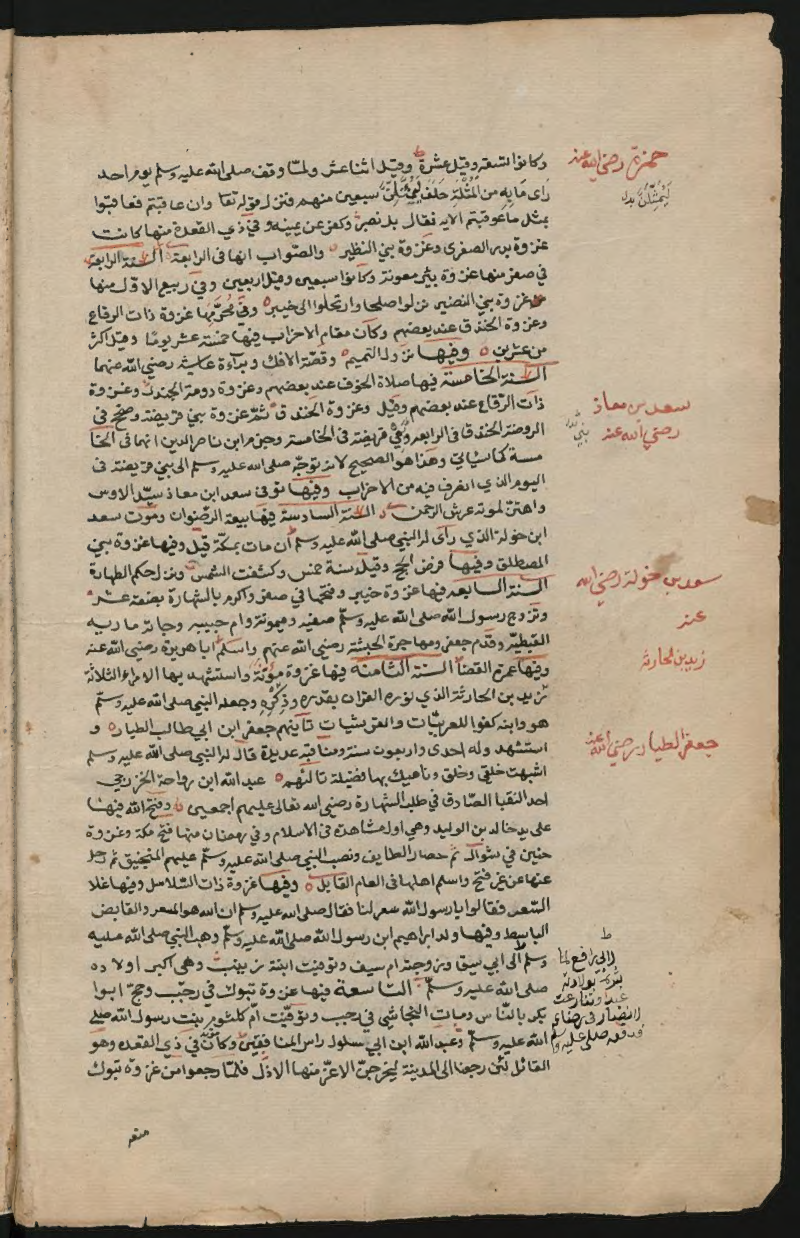 وكانوا تسعة وقيل عشرة وقيل اثنا عشر ولما وقف صلى الله عليه وسلم يوم احد
راى مابه من المُثْلَة حَلَفَ لَيُمَثِّلَنَّ سبعين منهم فنزل قوله تعا وان عاقبتم فعاقبوا
بمثل ما عوقبتم الايه فقال بل نصبر وكفر عن يمينه وفي ذي القعدة منها كانت
غزوة بدر الصغرى وغزوة بني النظير والصواب انها في الرابعة السنة الرابعة
في صفر منها غزوة بئر معونة وكانوا سبعين وقيل اربعين وفي ربيع الاول منها
غزوة بني النضير نزلوا صلحا وارتحلوا الى خيبر وفي مُحرَّمِها غزوة ذات الرقاع
وغزوة الخندق عند بعضهم وكان مقام الاحزاب فيها خمسة عشر يوما وقيل اكثر
من عشرين وفيها نزل التيمم وقصة الافك وبراءة عايشة رضي الله عنها
السنة الخامسة فيها صلاة الخوف عند بعضهم وغزوة دومة الجندل وغزوة
ذات الرقاع عند بعضهم وقيل وغزوة الخندق ثم غزوة بني قريضة وصحح في
الروضة الخندق في الرابعة وفي قريضة في الخامسة وجزم ابن ناصر الدين انهما في الخا
مسة كما سياتي وهذا هو الصحيح لانه توجه صلى الله عليه وسلم الى بني قريضة في
اليوم الذي انصرف فيه من الاحزاب وفيها توفى سعد ابن معاذ سيد الاوس
واهتز لموته عرش الرحمن السنة السادسة فيها بيعة الرضوان وموت سعد
ابن خولة الذي رثى له النبي صلى الله عليه وسلم ان مات بمكة قيل وفيها غزوة بني
المصطلق وفيها فرض الحج وقيل سنة خمس وكسفت الشمس ونزل حكم الظهارة
السنة السابعة فيها غزوة خيبر وفتحها في صفر واكرم بالشهادة بضعة عشر
وتزوج رسول الله صلى الله عليه وسلم صفيه وميمونة وام حبيبه وجاءته ماريه
القبطية وقدم جعفر ومهاجرة الحبشة رضي الله عنهم واسلم ابا هريرة رضي الله عنه
وفيها عمرة القضا السنة الثامنة فيها غزوة مؤتة واستشهد بها الامراء الثلاثة
زيد بن الحارثة الذي نوره القران بقدره وذِكْرِهِ وجعله النبي صلى الله عليه وسلم
هو وابنه كفوا للعربيات والقرشيات ثانيهم جعفر ابن ابي طالب الطيار و
استشهد وله احدى واربعون سنة ومناقبه عديدة قال له النبي صلى الله عليه وسلم
اشبهت خلقي وخلقي وناهيك بها فضيلة ثالثهم عبد الله ابن رواحة الخزرجي
احد النقبا الصادق في طلب الشهادة رضي الله تعالى عليهم اجمعين وفتح الله فيها
على يد خالد بن الوليد وهي اول مشاهده في الاسلام وفي رمضان منها فتح مكة وغزوة
حنين في شوال ثم حصار الطايف ونصب النبي صلى الله عليه وسلم عليهم المنجنيق ثم رحل
عنها عن غير فتح واسلم اهلها في العام القابل وفيها غزوة ذات السلاسل وفيها غلا
السعر فقالوا يا رسول الله سعر لنا فقال صلى الله عليه وسلم ان الله هو المسعر والقابض
الباسط وفيها ولد ابراهيم ابن رسول الله صلى الله عليه وسلم وهب النبي صلى الله عليه
وسلم الى ابي سيف وزوجته ام سيف وتوفيت ابنته زينب وهي اكبر اولاده
صلى الله عليه وسلم التاسعة فيها غزوة تبوك في رجب وحج ابوا
بكر بالناس ومات النجاشي في رجب وتوفيت ام كلثوم بنت رسول الله صلى
الله عليه وسلم وعبد الله ابن ابي سلول راس المنافقين وكان في ذي القعده وهو
القائل لئن رجعنا الى المدينة ليخرجن الاعز منها الاذل فلما رجعوا من غزوة تبوك
حمزة رضي الله عنه
لَيُمَثِّلَنَّ بدل
سعد بن معاذ
رضي الله عنه
بني
سعد بن خولة رضي الله
عنه
زيد بن الحارثه
جعفر الطيار رضي الله عنه
لابي رافع لما
بشره بولادته
عبدا وتنازعت
الانصار في رضاع